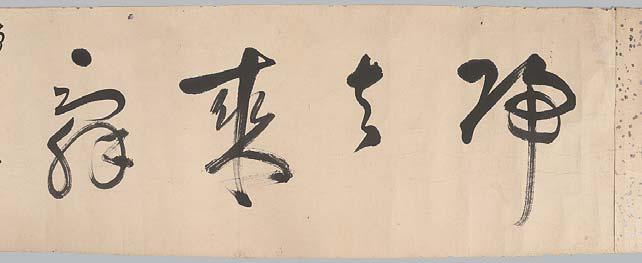 歸去來辭